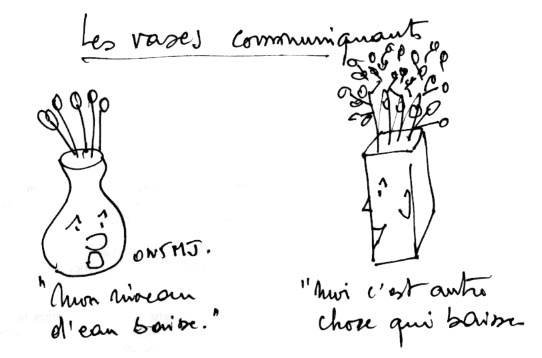 Les vases communiquants
ONSMJ.
"Mon niveau
d'eau baisse."
"Moi c'est autre
chose qui baisse